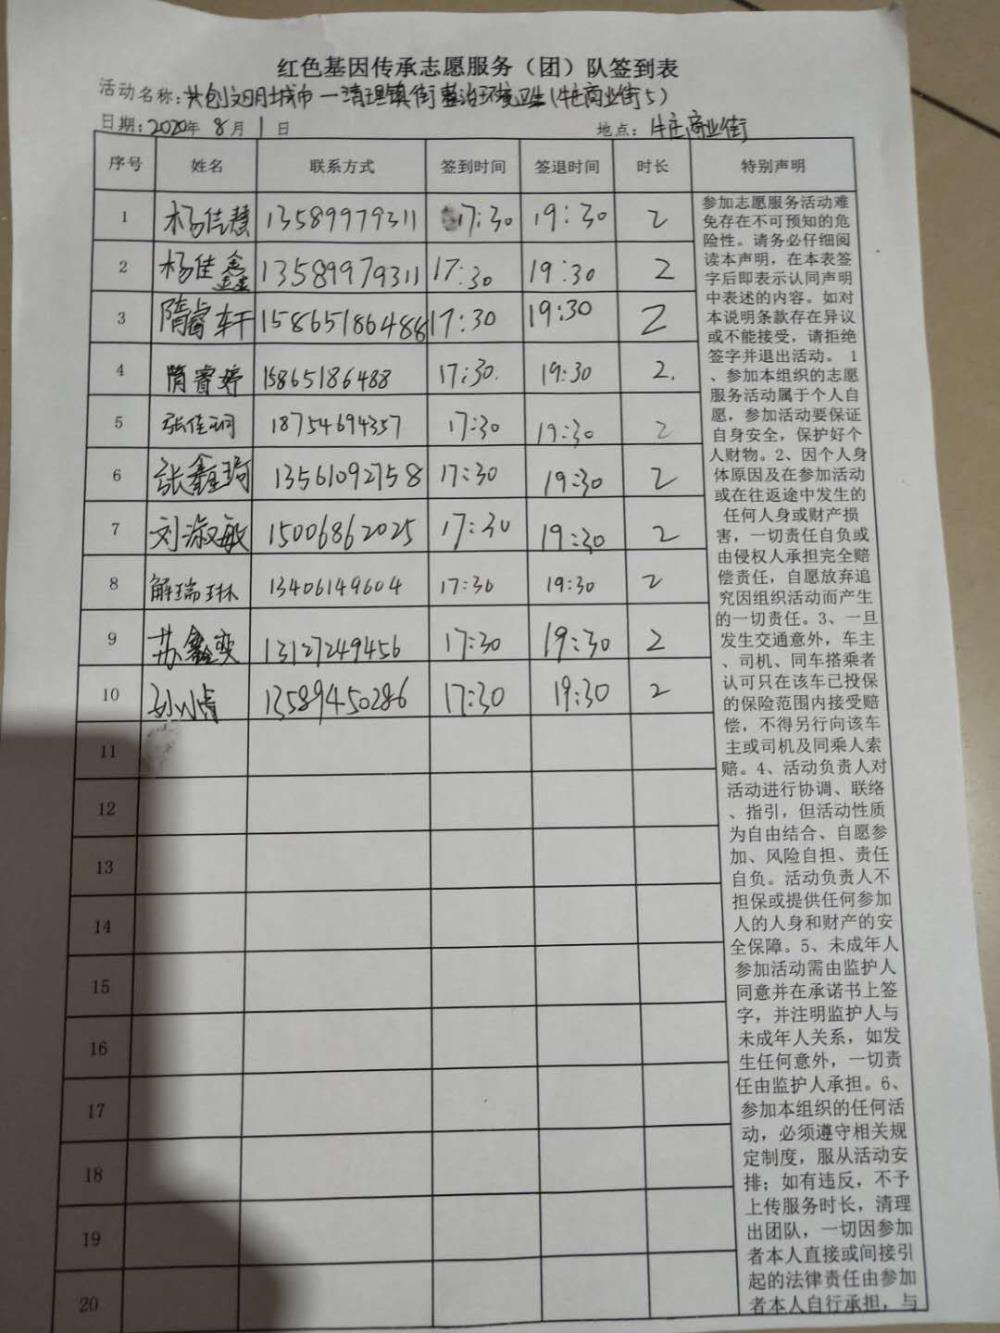 红色基因传承志愿服务（团）队签到表
活动名称：共创文明城市—清理镇街整治环境卫生（牛庄商业街5）
日期：2020年8月1日 地点：牛庄商业街
序号 姓名 联系方式 签到时间 签退时间 时长 特别声明
1 杨佳慧 13589979311 17:30 19:30 2
2 杨佳鑫 13589979311 17:30 19:30 2
3 隋睿轩 15865186488 17:30 19:30 2
4 隋睿婷 15865186488 17:30. 19:30 2.
5 张佳珂 18754694357 17:30 19:30 2
6 张鑫珂 13561092758 17:30 19:30 2
7 刘淑敏 15006862025 17:30 19:30 2
8 解瑞琳 13406149604 17:30 19:30 2
9 苏鑫奕 13127249456 17:30 19:30 2
10 孙 13589450286 17:30 19:30 2
11
12
13
14
15
16
17
18
19
20
参加志愿服务活动难
免存在不可预知的危
险性。请务必仔细阅
读本声明，在本表签
字后即表示认同声明
中表述的内容。如对
本说明条款存在异议
或不能接受，请拒绝
签字并退出活动。 1
、参加本组织的志愿
服务活动属于个人自
愿，参加活动要保证
自身安全，保护好个
人财物。2、因个人身
体原因及在参加活动
或在往返途中发生的
任何人身或财产损
害，一切责任自负或
由侵权人承担完全赔
偿责任，自愿放弃追
究因组织活动而产生
的一切责任。3、一旦
发生交通意外，车主
、司机、同车搭乘者
认可只在该车已投保
的保险范围内接受赔
偿，不得另行向该车
主或司机及同乘人索
赔。4、活动负责人对
活动进行协调、联络
、指引，但活动性质
为自由结合、自愿参
加、风险自担、责任
自负。活动负责人不
担保或提供任何参加
人的人身和财产的安
全保障。5、未成年人
参加活动需由监护人
同意并在承诺书上签
字，并注明监护人与
未成年人关系，如发
生任何意外，一切责
任由监护人承担。6、
参加本组织的任何活
动，必须遵守相关规
定制度，服从活动安
排；如有违反，不予
上传服务时长，清理
出团队，一切因参加
者本人直接或间接引
起的法律责任由参加
者本人自行承担，与